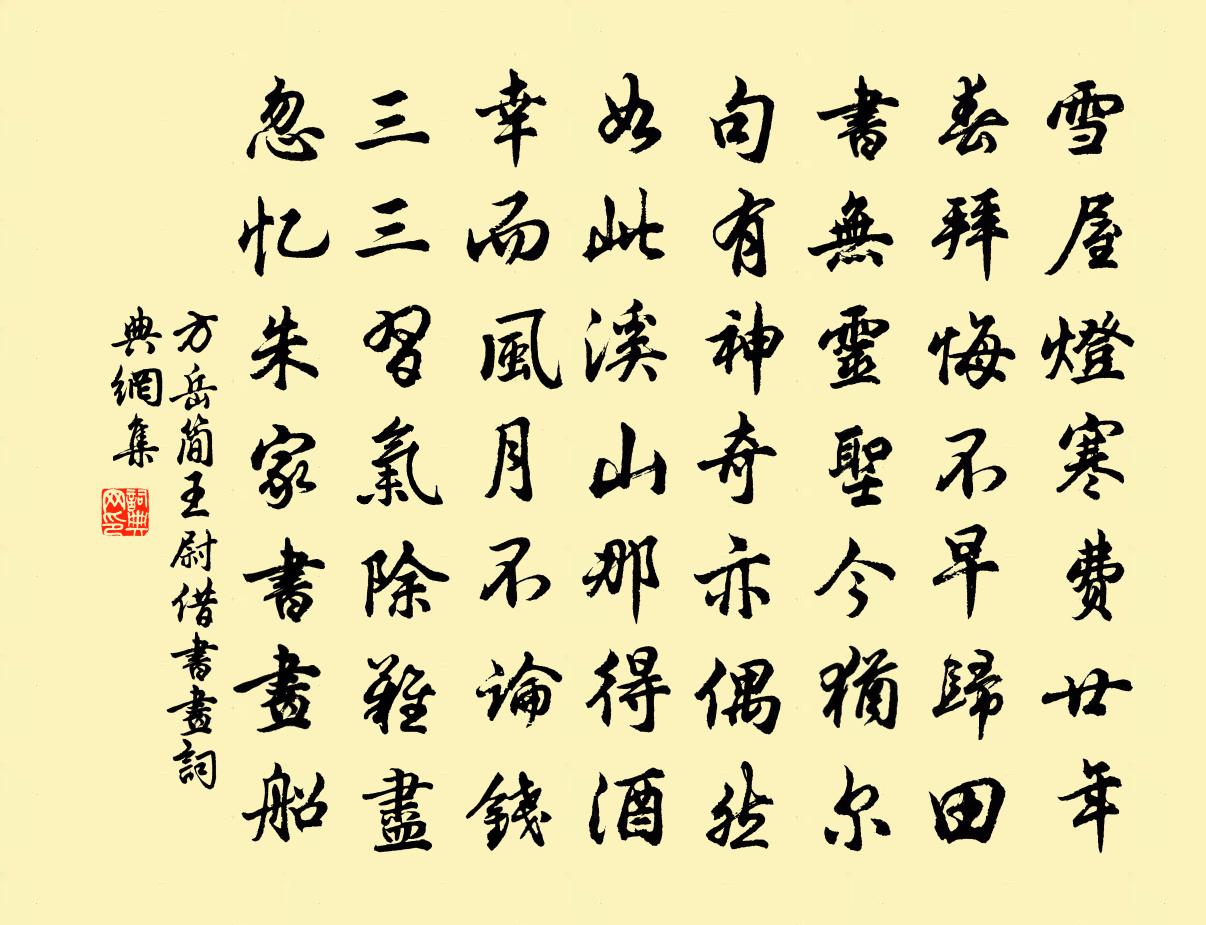 雪屋燈寒費廿年
春拜悔不早歸田
書無靈聖今猶尔
句有神奇亦偶然
如此溪山那得酒
幸而風月不論錢
三三習氣除難盡
忽忆朱家書畫船
方岳简王尉借書畫詞
典網集
詞典
网印